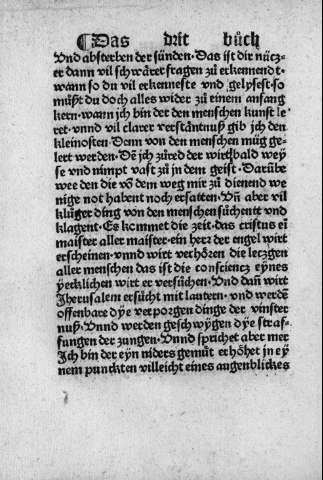 ¶Das drit bůch
Vnd absterben der sünden. Das ist dir nücz-
er dann vil schwårer fragen zů erkennend t.
wann so du vil erkennest vnd gelysest. so
můst du doch alles wider zů einem anfang
kern. wann ich bin der den menschen kunst le
ret. vnnd vil clarer verståntnuß gib ich den
kleinosten. Denn von den menschen müg ge-
lert werden. Dē ich zůred der wirt bald wey
se vnd nimpt vast zů in dem geist. Darübe
wee den die võ dem weg mir zů dienend we
nige not habent noch ersatten. Vñ aber vil
klůger ding von den menschen sůchent t vnd
klagent. Es kommet die zeit. das cristus eī
maister aller maister. ein herz der engel wirt
erscheinen. vnnd wirt verhören die leczgen
aller menschen das ist die consciencz eynes
yecklichen wirt er versůchen. Vnd dañ wirt
Jherusalem ersůcht mit lautern. vnd werdē
offenbare dye verporgen dinge der vinster
nuß. Vnnd werden geschwygen dye straf-
fungen der zungen. Vnnd sprichet aber mer
Jch bin der eyn niders gemůt erhőhet jn ey
nem punckten villeicht eines augenblickes